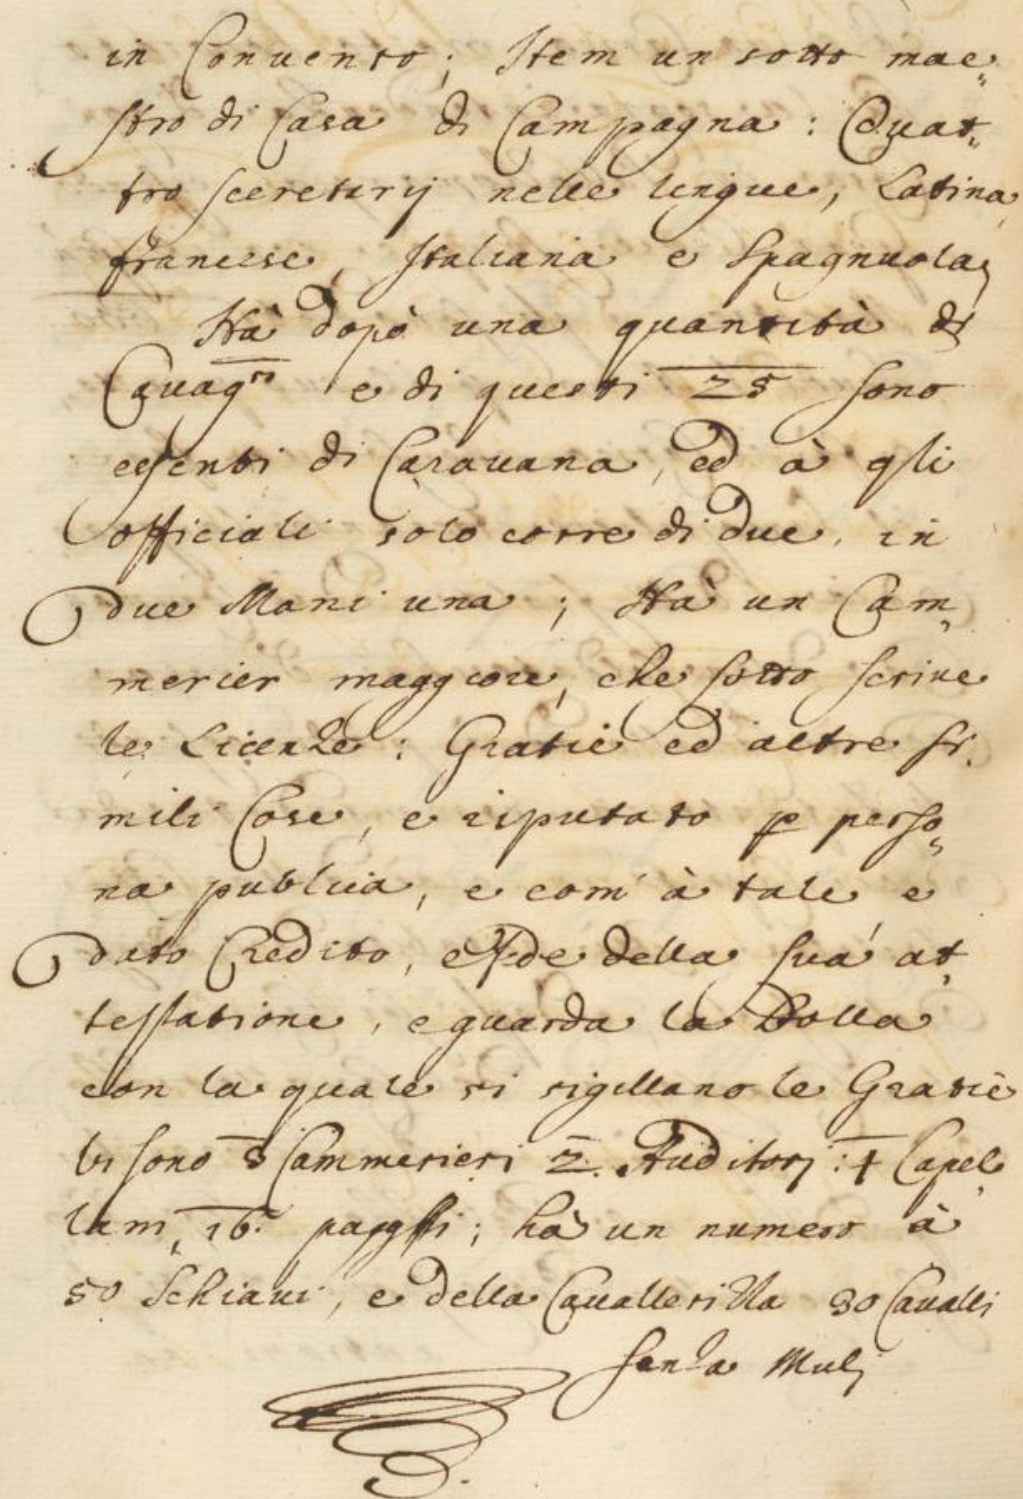 in Conuento; Item un sotto mae„
stro di Casa di Campagna: Quat„
tro secretarij nelle lingue, Latina
francese, Italiana e Spagnuola,
Hà dopò una quantità di
Cauag.ri e di questi 25 sono
essenti di Carauana, ed à gli
officiali solo corre di due, in
due Mani una; Hà un Cam„
merier maggiore, che sotto scriue
le Licenze: Gratie ed altre si.
mili Cose, e riputato p perso„
na publica, e com' à tale e
dato Credito, e fede della sua at„
testatione, e guarda la Bolla
con la quale si sigillano le Gratie
vi sono 8 Cammerieri 2. Auditorj: 4 Capel„
lani, 16. paggi; hà un numero à
50 Schiaui, e della Cauallerizza 30 Caualli
senza Mulj